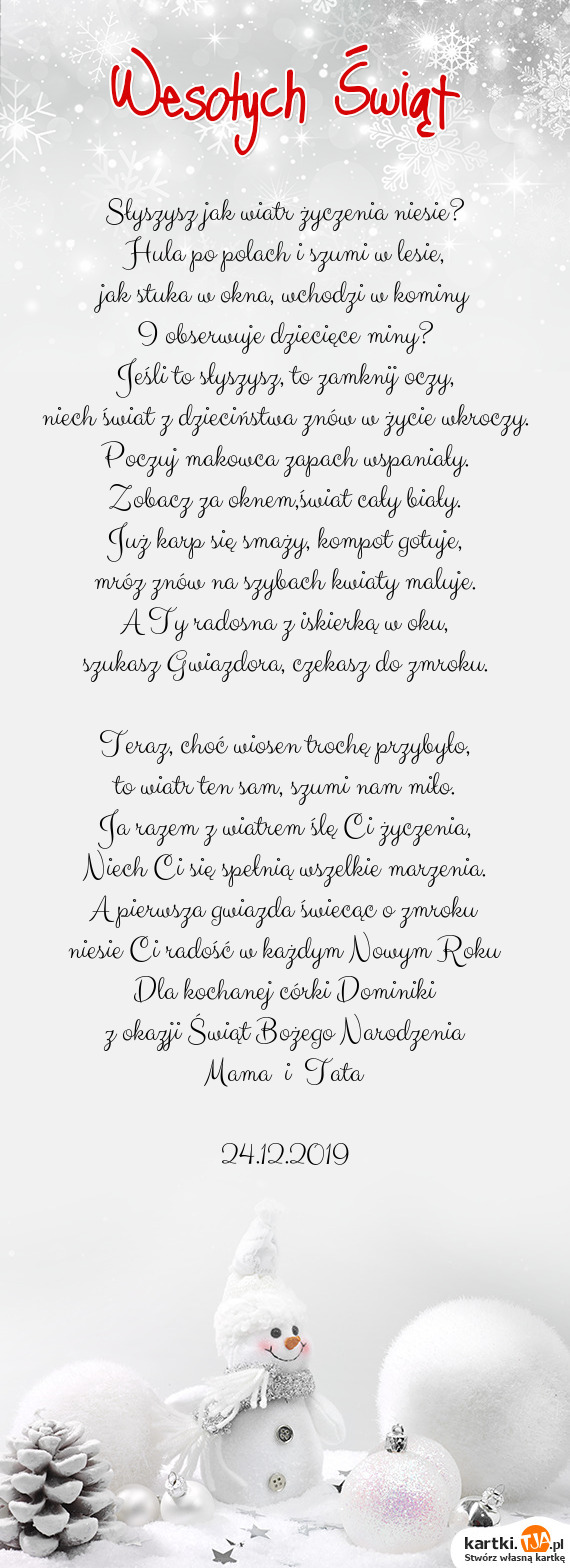 Wesołych Świąt
Słyszysz jak wiatr życzenia niesie?
Hula po polach i szumi w lesie,
jak stuka w okna, wchodzi w kominy
I obserwuje dziecięce miny?
Jeśli to słyszysz, to zamknij oczy,
niech świat z dzieciństwa znów w życie wkroczy.
Poczuj makowca zapach wspaniały.
Zobacz za oknem,świat cały biały.
Już karp się smaży, kompot gotuje,
mróz znów na szybach kwiaty maluje.
A Ty radosna z iskierką w oku,
szukasz Gwiazdora, czekasz do zmroku.
Teraz, choć wiosen trochę przybyło,
to wiatr ten sam, szumi nam miło.
Ja razem z wiatrem ślę Ci życzenia,
Niech Ci się spełnią wszelkie marzenia.
A pierwsza gwiazda świecąc o zmroku
niesie Ci radość w każdym Nowym Roku
Dla kochanej córki Dominiki
z okazji Świąt Bożego Narodzenia
Mama i Tata
24.12.2019
kartki.TJA.pl
Stwórz własną kartkę